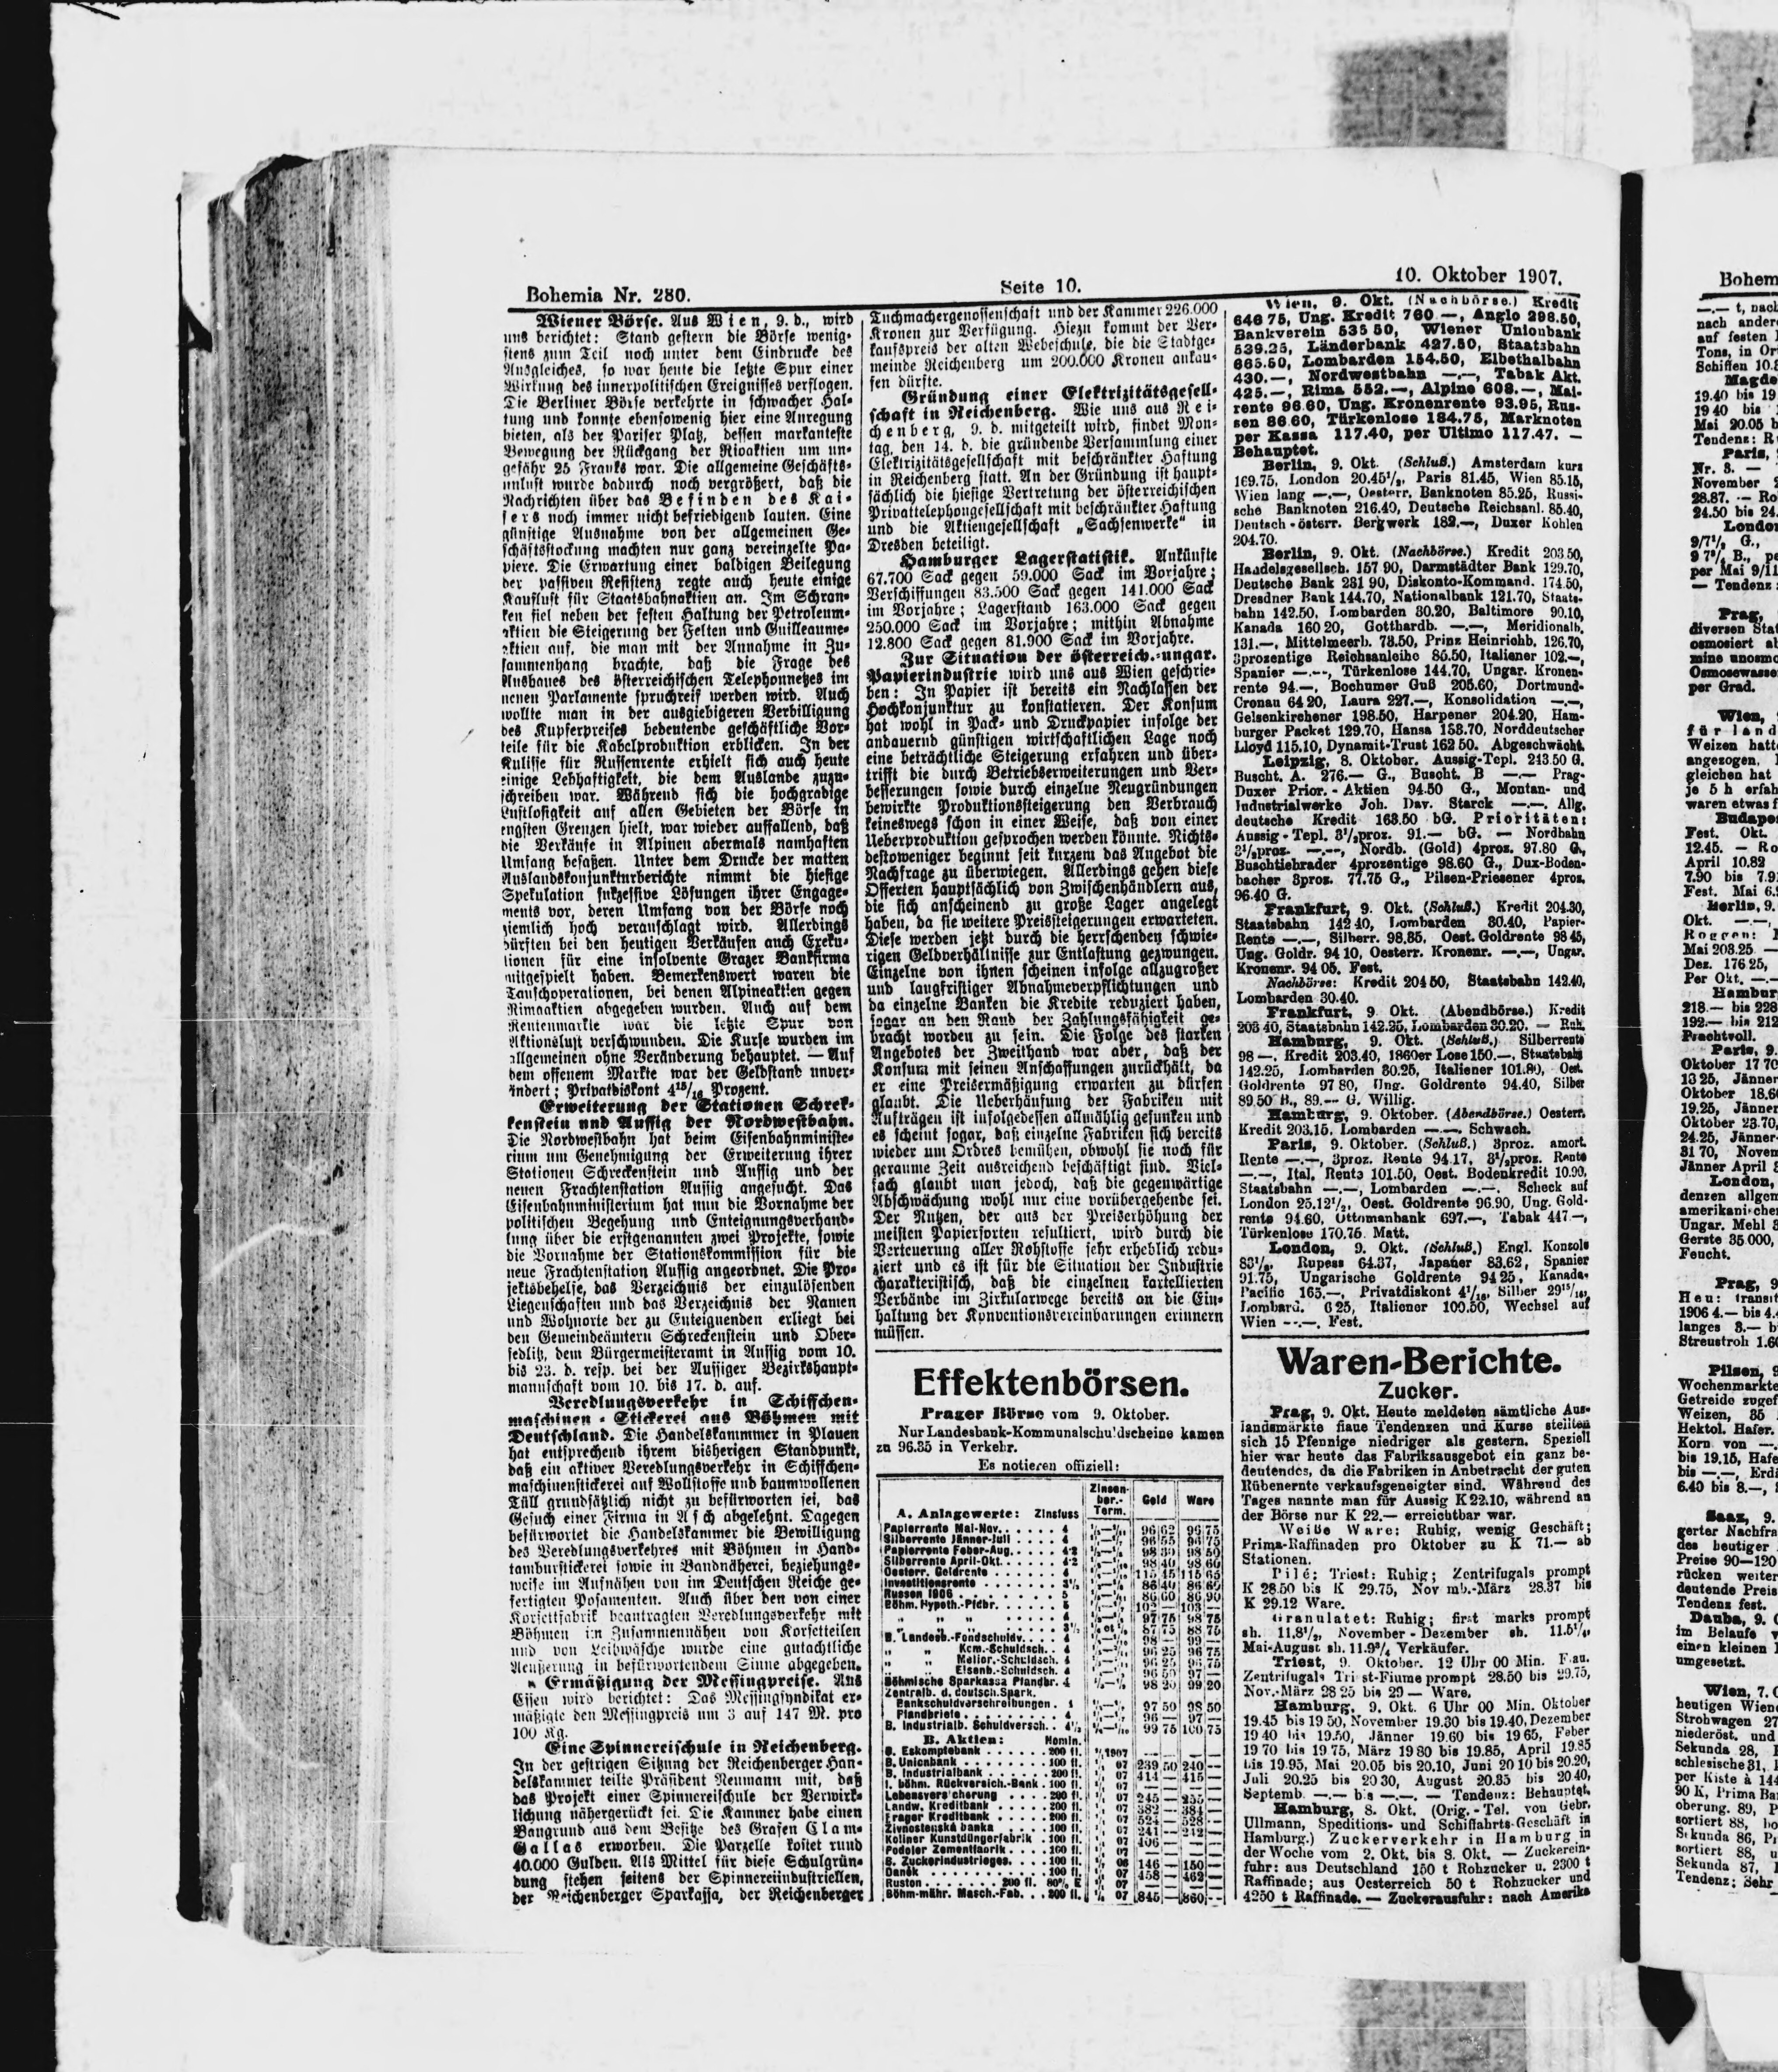 Bohemia Nr. 280.
Seite 10.
10. Oktober 1907.
Wiener Börse. Aus Wien, 9. d., wird
uns berichtet: Stand gestern die Börse wenig-
stens zum Teil noch unter dem Eindrucke des
Ausgleiches, so war heute die letzte Spur einer
Wirkung des innerpolitischen Ereignisses verflogen.
Die Berliner Börse verkehrte in schwacher Hal-
tung und konnte ebensowenig hier eine Anregung
bieten, als der Pariser Platz, dessen markanteste
Bewegung der Rückgang der Rioaktien um un-
gefähr 25 Franks war. Die allgemeine Geschäfts-
unlust wurde dadurch noch vergrößert, daß die
Nachrichten über das Befinden des Kai-
sers noch immer nicht befriedigend lauten. Eine
günstige Ausnahme von der allgemeinen Ge-
schäftsstockung machten nur ganz vereinzelte Pa-
piere. Die Erwartung einer baldigen Beilegung
der passiven Resistenz regte auch heute einige
Kauflust für Staatsbahnaktien an. Im Schran-
ken fiel neben der festen Haltung der Petroleum-
aktien die Steigerung der Felten und Guilleaume-
aktien auf, die man mit der Annahme in Zu-
sammenhang brachte, daß die Frage des
Ausbaues des österreichischen Telephonnetzes im
neuen Parlamente spruchreif werden wird. Auch
wollte man in der ausgiebigeren Verbilligung
des Kupferpreises bedeutende geschäftliche Vor-
teile für die Kabelproduktion erblicken. In der
Kulisse für Russenrente erhielt sich auch heute
einige Lebhaftigkeit, die dem Auslande zuzu-
schreiben war. Während sich die hochgradige
Lustlosigkeit auf allen Gebieten der Börse in
engsten Grenzen hielt, war wieder auffallend, daß
die Verkäufe in Alpinen abermals namhaften
Umfang besaßen. Unter dem Drucke der matten
Auslandskonjunkturberichte nimmt die hiesige
Spekulation sukzessive Lösungen ihrer Engage-
ments vor, deren Umfang von der Börse noch
ziemlich hoch veranschlagt wird. Allerdings
dürften bei den heutigen Verkäufen auch Exeku-
tionen für eine insolvente Grazer Bankfirma
mitgespielt haben. Bemerkenswert waren die
Tauschoperationen, bei denen Alpineaktien gegen
Rimaaktien abgegeben wurden. Auch auf dem
Rentenmarkte war die letzte Spur von
Aktionslust verschwunden. Die Kurse wurden im
allgemeinen ohne Veränderung behauptet. — Auf
dem offenem Markte war der Geldstand unver-
ändert; Privatdiskont 4 15/16 Prozent.
Erweiterung der Stationen Schrek-
kenstein und Aussig der Nordwestbahn.
Die Nordwestbahn hat beim Eisenbahnministe-
rium um Genehmigung der Erweiterung ihrer
Stationen Schreckenstein und Aussig und der
neuen Frachtenstation Aussig angesucht. Das
Eisenbahnministerium hat nun die Vornahme der
politischen Begehung und Enteignungsverhand-
lung über die erstgenannten zwei Projekte, sowie
die Vornahme der Stationskommission für die
neue Frachtenstation Aussig angeordnet. Die Pro-
jektsbehelfe, das Verzeichnis der einzulösenden
Liegenschaften und das Verzeichnis der Namen
und Wohnorte der zu Enteignenden erliegt bei
den Gemeindeämtern Schreckenstein und Ober-
sedlitz, dem Bürgermeisteramt in Aussig vom 10.
bis 23. d. resp. bei der Aussiger Bezirkshaupt-
mannschaft vom 10. bis 17. d. auf.
Veredlungsverkehr in Schiffchen-
maschinen-Stickerei aus Böhmen mit
Deutschland. Die Handelskammmer in Plauen
hat entsprechend ihrem bisherigen Standpunkt,
daß ein aktiver Veredlungsverkehr in Schiffchen-
maschinenstickerei auf Wollstoffe und baumwollenen
Tüll grundsätzlich nicht zu befürworten sei, das
Gesuch einer Firma in Asch abgelehnt. Dagegen
befürwortet die Handelskammer die Bewilligung
des Veredlungsverkehres mit Böhmen in Hand-
tamburstickerei sowie in Bandnäherei, beziehungs-
weise im Aufnähen von im Deutschen Reiche ge-
fertigten Posamenten. Auch über den von einer
Korsettfabrik beantragten Veredlungsverkehr mit
Böhmen im Zusammennähen von Korsetteilen
und von Leibwäsche wurde eine gutachtliche
Aeußerung in befürwortendem Sinne abgegeben.
Ermäßigung der Messingpreise. Aus
Essen wird berichtet: Das Messingsyndikat er-
mäßigte den Messingpreis um 3 auf 147 M. pro
100 Kg.
Eine Spinnereischule in Reichenberg.
In der gestrigen Sitzung der Reichenberger Han-
delskammer teilte Präsident Neumann mit, daß
das Projekt einer Spinnereischule der Verwirk-
lichung nähergerückt sei. Die Kammer habe einen
Baugrund aus dem Besitze des Grafen Clam-
Gallas erworben. Die Parzelle kostet rund
40.000 Gulden. Als Mittel für diese Schulgrün-
dung stehen seitens der Spinnereiindustriellen,
der Reichenberger Sparkassa, der Reichenberger
Tuchmachergenossenschaft und der Kammer 226.000
Kronen zur Verfügung. Hiezu kommt der Ver-
kaufspreis der alten Webeschule, die die Stadtge-
meinde Reichenberg um 200.000 Kronen ankau-
fen dürfte.
Gründung einer Elektrizitätsgesell-
schaft in Reichenberg. Wie uns aus Rei-
chenberg, 9. d. mitgeteilt wird, findet Mon-
tag, den 14. d. die gründende Versammlung einer
Elektrizitätsgesellschaft mit beschränkter Haftung
in Reichenberg statt. An der Gründung ist haupt-
sächlich die hiesige Vertretung der österreichischen
Privattelephongesellschaft mit beschränkter Haftung
und die Aktiengesellschaft „Sachsenwerke“ in
Dresden beteiligt.
Hamburger Lagerstatistik. Ankünfte
67.700 Sack gegen 59.000 Sack im Vorjahre;
Verschiffungen 83.500 Sack gegen 141.000 Sack
im Vorjahre; Lagerstand 163.000 Sack gegen
250.000 Sack im Vorjahre; mithin Abnahme
12.800 Sack gegen 81.900 Sack im Vorjahre.
Zur Situation der österreich.-ungar.
Papierindustrie wird uns aus Wien geschrie-
ben: In Papier ist bereits ein Nachlassen der
Hochkonjunktur zu konstatieren. Der Konsum
hat wohl in Pack- und Druckpapier infolge der
andauernd günstigen wirtschaftlichen Lage noch
eine beträchtliche Steigerung erfahren und über-
trifft die durch Betriebserweiterungen und Ver-
besserungen sowie durch einzelne Neugründungen
bewirkte Produktionssteigerung den Verbrauch
keineswegs schon in einer Weise, daß von einer
Ueberproduktion gesprochen werden könnte. Nichts-
destoweniger beginnt seit kurzem das Angebot die
Nachfrage zu überwiegen. Allerdings gehen diese
Offerten hauptsächlich von Zwischenhändlern aus,
die sich anscheinend zu große Lager angelegt
haben, da sie weitere Preissteigerungen erwarteten.
Diese werden jetzt durch die herrschenden schwie-
rigen Geldverhältnisse zur Entlastung gezwungen.
Einzelne von ihnen scheinen infolge allzugroßer
und langfristiger Abnahmeverpflichtungen und
da einzelne Banken die Kredite reduziert haben,
sogar an den Rand der Zahlungsfähigkeit ge-
bracht worden zu sein. Die Folge des starken
Angebotes der Zweithand war aber, daß der
Konsum mit seinen Anschaffungen zurückhält, da
er eine Preisermäßigung erwarten zu dürfen
glaubt. Die Ueberhäufung der Fabriken mit
Aufträgen ist infolgedessen allmählig gesunken und
es scheint sogar, daß einzelne Fabriken sich bereits
wieder um Ordres bemühen, obwohl sie noch für
geraume Zeit ausreichend beschäftigt sind. Viel-
fach glaubt man jedoch, daß die gegenwärtige
Abschwächung wohl nur eine vorübergehende sei.
Der Nutzen, der aus der Preiserhöhung der
meisten Papiersorten resultiert, wird durch die
Verteuerung aller Rohstoffe sehr erheblich redu-
ziert und es ist für die Situation der Industrie
charakteristisch, daß die einzelnen kartellierten
Verbände im Zirkularwege bereits an die Ein-
haltung der Konventionsvereinbarungen erinnern
müssen.
Effektenbörsen.
Prager Börse vom 9. Oktober.
Nur Landesbank-Kommunalschuldscheine kamen
zu 96.35 in Verkehr.
Es notieren offiziell:
A. Anlagewerte: Zinsfuss Zinsen-ber.-Term. Geld Ware
Papierrente Mai-Nov. 4 96 62 96 75
Silberrente Jänner-Juli 4 96 55 96 75
Papierrente Feber-Aug. 4·2 98 30 98 50
Silberrente April-Okt. 4·2 98 40 98 60
Oesterr. Goldrente 4 115 45 115 65
Investitionsrente 3½ 86 40 86 60
Russen 1906 5 86 60 86 90
Böhm. Hypoth.-Pfdbr. 5 102 — 103 —
„ „ 4 97 75 98 75
„ „ 3½ 87 75 88 75
B. Landesb.-Fondschuldv. 4 98 — 99 —
„ „ Kom.-Schuldsch. 4 96 25 96 75
„ „ Melior.-Schuldsch. 4 96 25 96 75
„ „ Eisenb.-Schuldsch. 4 96 50 97 —
Böhmische Sparkassa Pfandbr. 4 98 20 99 20
Zentralb. d. deutsch. Spark.
Bankschuldverschreibungen 4 97 50 98 50
Pfandbriefe 4 96 — 97 —
B. Industrialb. Schuldversch. 4½ 99 75 100 75
B. Aktien: Nomin.
B. Eskomptebank 200 fl. 1907 — —
B. Unionbank 100 fl. 07 239 50 240 —
B. Industrialbank 200 fl. 07 414 — 415 —
I. böhm. Rückversich.-Bank 100 fl. 07
Lebensversicherung 200 fl. 07 245 — 255 —
Landw. Kreditbank 200 fl. 07 382 — 384 —
Prager Kreditbank 200 fl. 07 524 — 528 —
Živnostenská banka 100 fl. 07 241 — 242 —
Koliner Kunstdüngerfabrik 100 fl. 07 406 — —
Podoler Zementfabrik 100 fl. 07 — —
B. Zuckerindustrieges. 100 fl. 06 146 — 150 —
Daněk 100 fl. 07 458 — 462 —
Ruston 200 fl. 80% E 07 — —
Böhm-mähr. Masch.-Fab. 200 fl. 07 845 — 860 —
Wien, 9. Okt. (Nachbörse.) Kredit
646 75, Ung. Kredit 760 —, Anglo 298.50,
Bankverein 535 50, Wiener Unionbank
539.25, Länderbank 427.50, Staatsbahn
665.50, Lombarden 154.50, Elbethalbahn
430.—, Nordwestbahn —.—, Tabak Akt.
425.—, Rima 552.—, Alpine 608.—, Mai-
rente 96.60, Ung. Kronenrente 93.95, Rus-
sen 86.60, Türkenlose 184.75, Marknoten
per Kassa 117.40, per Ultimo 117.47. —
Behauptet.
Berlin, 9. Okt. (Schluß.) Amsterdam kurs
169.75, London 20.45½, Paris 81.45, Wien 85.15,
Wien lang —.—, Oesterr. Banknoten 85.25, Russi-
sche Banknoten 216.40, Deutsche Reichsanl. 85.40,
Deutsch-österr. Bergwerk 182.—, Duxer Kohlen
204.70.
Berlin, 9. Okt. (Nachbörse.) Kredit 203 50,
Handelsgesellsch. 157 90, Darmstädter Bank 129.70,
Deutsche Bank 231 90, Diskonto-Kommand. 174.50,
Dresdner Bank 144.70, Nationalbank 121.70, Staats-
bahn 142.50, Lombarden 30.20, Baltimore 90.10,
Kanada 160 20, Gotthardb. —.—, Meridionalb.
131.—, Mittelmeerb. 78.50, Prinz Heinrichb. 126.70,
3prozentige Reichsanleihe 85.50, Italiener 102.—,
Spanier —.—, Türkenlose 144.70, Ungar. Kronen-
rente 94.—, Bochumer Guß 205.60, Dortmund-
Cronau 64 20, Laura 227.—, Konsolidation —.—,
Gelsenkirchener 198.50, Harpener 204.20, Ham-
burger Packet 129.70, Hansa 138.70, Norddeutscher
Lloyd 115.10, Dynamit-Trust 162 50. Abgeschwächt.
Leipzig, 8. Oktober. Aussig-Tepl. 243.50 G.
Buscht. A. 276.— G., Buscht. B —.— Prag-
Duxer Prior.-Aktien 94.50 G., Montan- und
Industrialwerke Joh. Dav. Starck —.—. Allg.
deutsche Kredit 163.50 bG. Prioritäten:
Aussig-Tepl. 3½proz. 91.— bG. — Nordbahn
3½proz. —.—, Nordb. (Gold) 4proz. 97.80 G.,
Buschtiehrader 4prozentige 98.60 G., Dux-Boden-
bacher 3proz. 77.75 G., Pilsen-Priesener 4proz.
96.40 G.
Frankfurt, 9. Okt. (Schluß.) Kredit 204.30,
Staatsbahn 142 40, Lombarden 30.40, Papier-
Rente —.—, Silberr. 98.85, Oest. Goldrente 98 45,
Ung. Goldr. 94 10, Oesterr. Kronenr. —.—, Ungar.
Kronenr. 94 05. Fest.
Nachbörse: Kredit 204 50, Staatsbahn 142.40,
Lombarden 30.40.
Frankfurt, 9. Okt. (Abendbörse.) Kredit
203 40, Staatsbahn 142.25, Lombarden 30.20. — Ruh.
Hamburg, 9. Okt. (Schluß.) Silberrente
98 —, Kredit 203.40, 1860er Lose 150.—, Staatsbahn
142.25, Lombarden 30.25, Italiener 101.80, Oest.
Goldrente 97 80, Ung. Goldrente 94.40, Silber
89.50 B., 89.— G. Willig.
Hamburg, 9. Oktober. (Abendbörse.) Oesterr.
Kredit 203.15, Lombarden —.—. Schwach.
Paris, 9. Oktober. (Schluß.) 3proz. amort.
Rente —.—, 3proz. Rente 94.17, 3½proz. Rente
—.—, Ital. Rente 101.50, Oest. Bodenkredit 10.90,
Staatsbahn —.—, Lombarden —.—, Scheck auf
London 25.12½, Oest. Goldrente 96.90, Ung. Gold-
rente 94.60, Ottomanbank 697.—, Tabak 447.—,
Türkenlose 170.75. Matt.
London, 9. Okt. (Schluß.) Engl. Konsols
Rupees 64.37, Japaner 83.62, Spanier
91.75, Ungarische Goldrente 94 25, Kanada-
Pacific 165.—, Privatdiskont Silber
Lombard. 6 25, Italiener 100.50, Wechsel auf
Wien —.—. Fest.
Waren-Berichte.
Zucker.
Prag, 9. Okt. Heute meldeten sämtliche Aus-
landsmärkte flaue Tendenzen und Kurse stellten
sich 15 Pfennige niedriger als gestern. Speziell
hier war heute das Fabriksausgebot ein ganz be-
deutendes, da die Fabriken in Anbetracht der guten
Rübenernte verkaufsgeneigter sind. Während des
Tages nannte man für Aussig K 22.10, während an
der Börse nur K 22.— erreichtbar war.
Weiße Ware: Ruhig, wenig Geschäft;
Prima-Raffinaden pro Oktober zu K 71.— ab
Stationen.
Pilé: Triest: Ruhig; Zentrifugals prompt
K 28.50 bis K 29.75, Novemb.-März 28.37 bis
K 29.12 Ware.
Granulatet: Ruhig; first marks prompt
sh. 11,8¼, November-Dezember sh.
Mai-August sh. Verkäufer.
Triest, 9. Oktober. 12 Uhr 00 Min. Flau.
Zentrifugals Triest-Fiume prompt 28.50 bis 29.75,
Nov.-März 28 25 bis 29 — Ware.
Hamburg, 9. Okt. 6 Uhr 00 Min. Oktober
19.45 bis 19 50, November 19.30 bis 19.40, Dezember
19 40 bis 19.50, Jänner 19.60 bis 19 65, Feber
19 70 bis 19 75, März 19 80 bis 19.85, April 19.85
bis 19.95, Mai 20.05 bis 20.10, Juni 20 10 bis 20.20,
Juli 20.25 bis 20 30, August 20.35 bis 20 40,
Septemb. —.— bis —.—. — Tendenz: Behauptet.
Hamburg, 8. Okt. (Orig.-Tel. von Gebr.
Ullmann, Speditions- und Schiffahrts-Geschäft in
Hamburg.) Zuckerverkehr in Hamburg in
der Woche vom 2. Okt. bis 8. Okt. — Zuckerein-
fuhr: aus Deutschland 150 t Rohzucker u. 2300 t
Raffinade; aus Oesterreich 50 t Rohzucker und
4250 t Raffinade. — Zuckerausfuhr: nach Amerika
Bohem